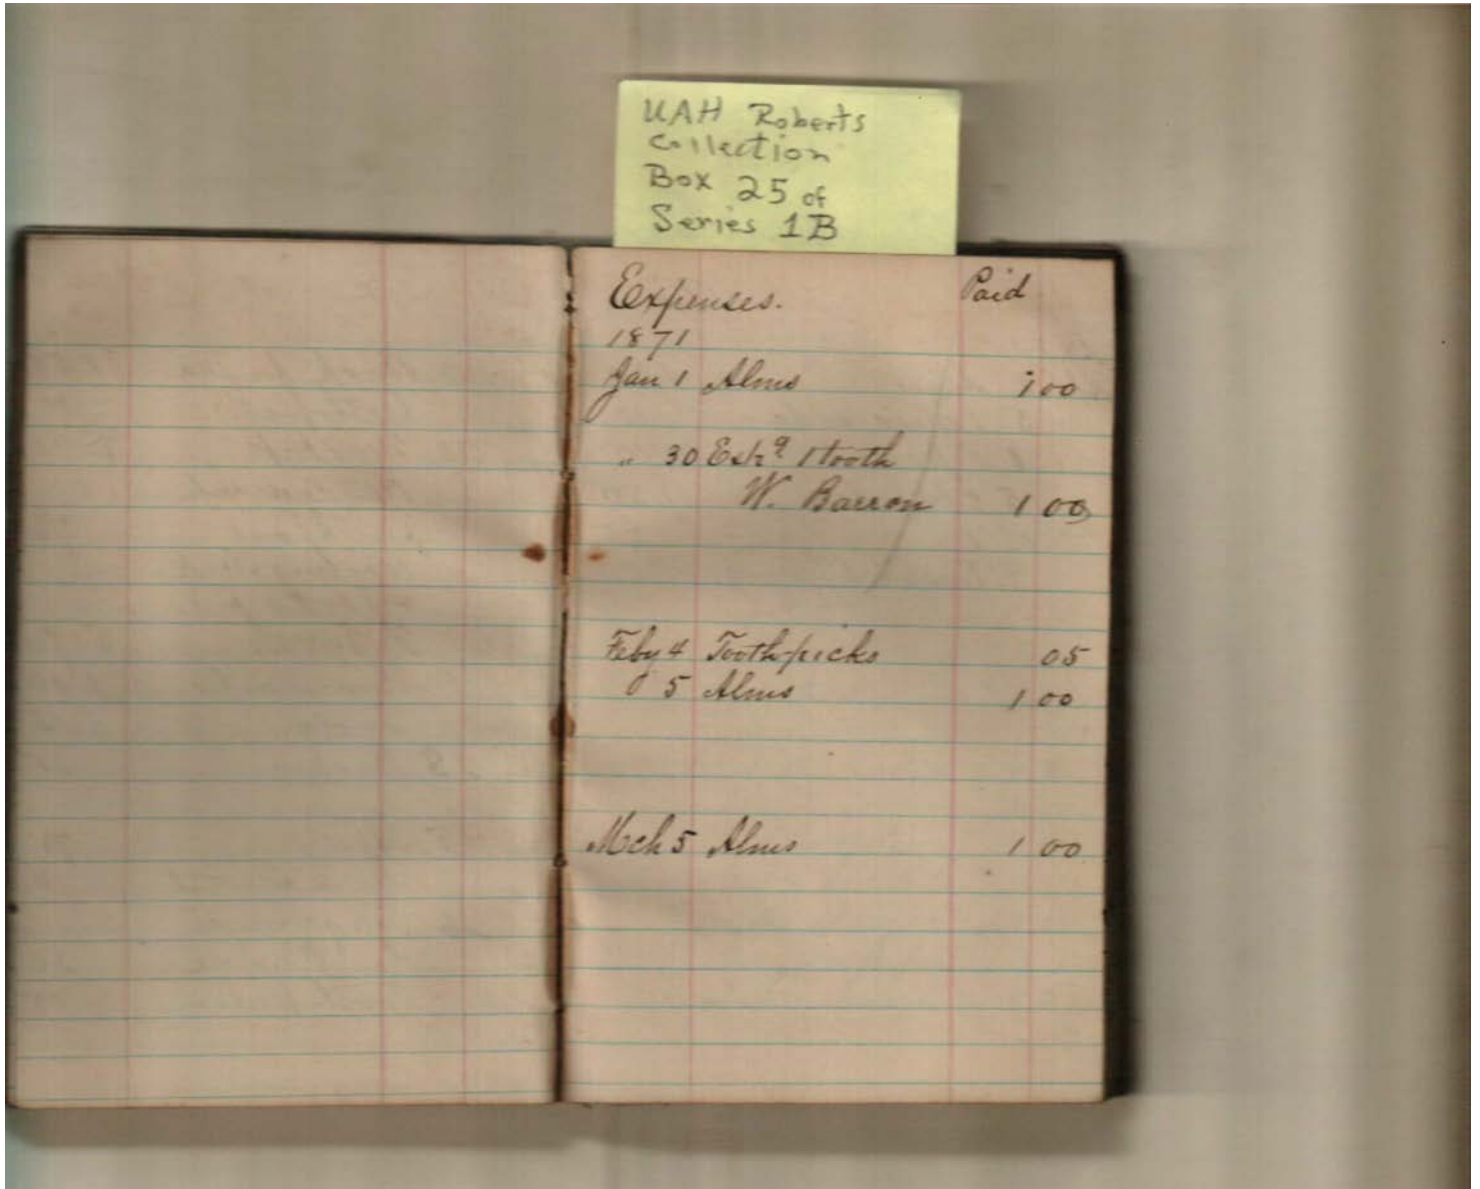 UAH Roberts
Collection
Box 25 of
Series 1B
Expenses. Paid
1871
Jan 1 Alms 1 00
" 30 1 tooth
W. Barron 1 00
Feby 4 Tooth-picks 05
5 Alms 1 00
Mch 5 Alms 1 00